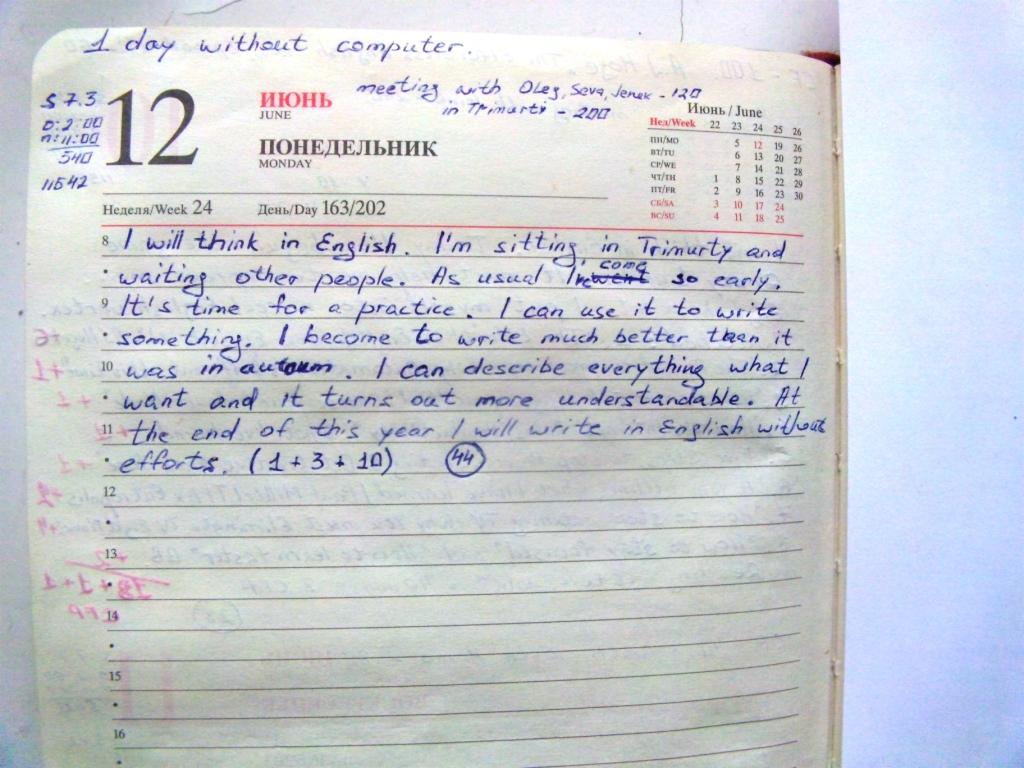 1 day without computer.
meeting with Oleg, Seva, Jenek - 120
in Trimurti - 200
S 7.3
D: 2:00
n: 11:00
540
11542
12
ИЮНЬ
JUNE
ПОНЕДЕЛЬНИК
MONDAY
Неделя/Week 24 День/Day 163/202
Июнь / June
Нед/Week 22 23 24 25 26
ПН/MO 5 12 19 26
ВТ/TU 6 13 20 27
СР/WE 7 14 21 28
ЧТ/TH 1 8 15 22 29
ПТ/FR 2 9 16 23 30
СБ/SA 3 10 17 24
ВС/SU 4 11 18 25
8 I will think in English. I'm sitting in Trimurty and
waiting other people. As usual I come so early.
9 It's time for a practice. I can use it to write
something. I become to write much better than it
10 was in autumn. I can describe everything what I
want and it turns out more understandable. At
11 the end of this year I will write in English without
efforts. (1 + 3 + 10) 44
12
13
14
15
16